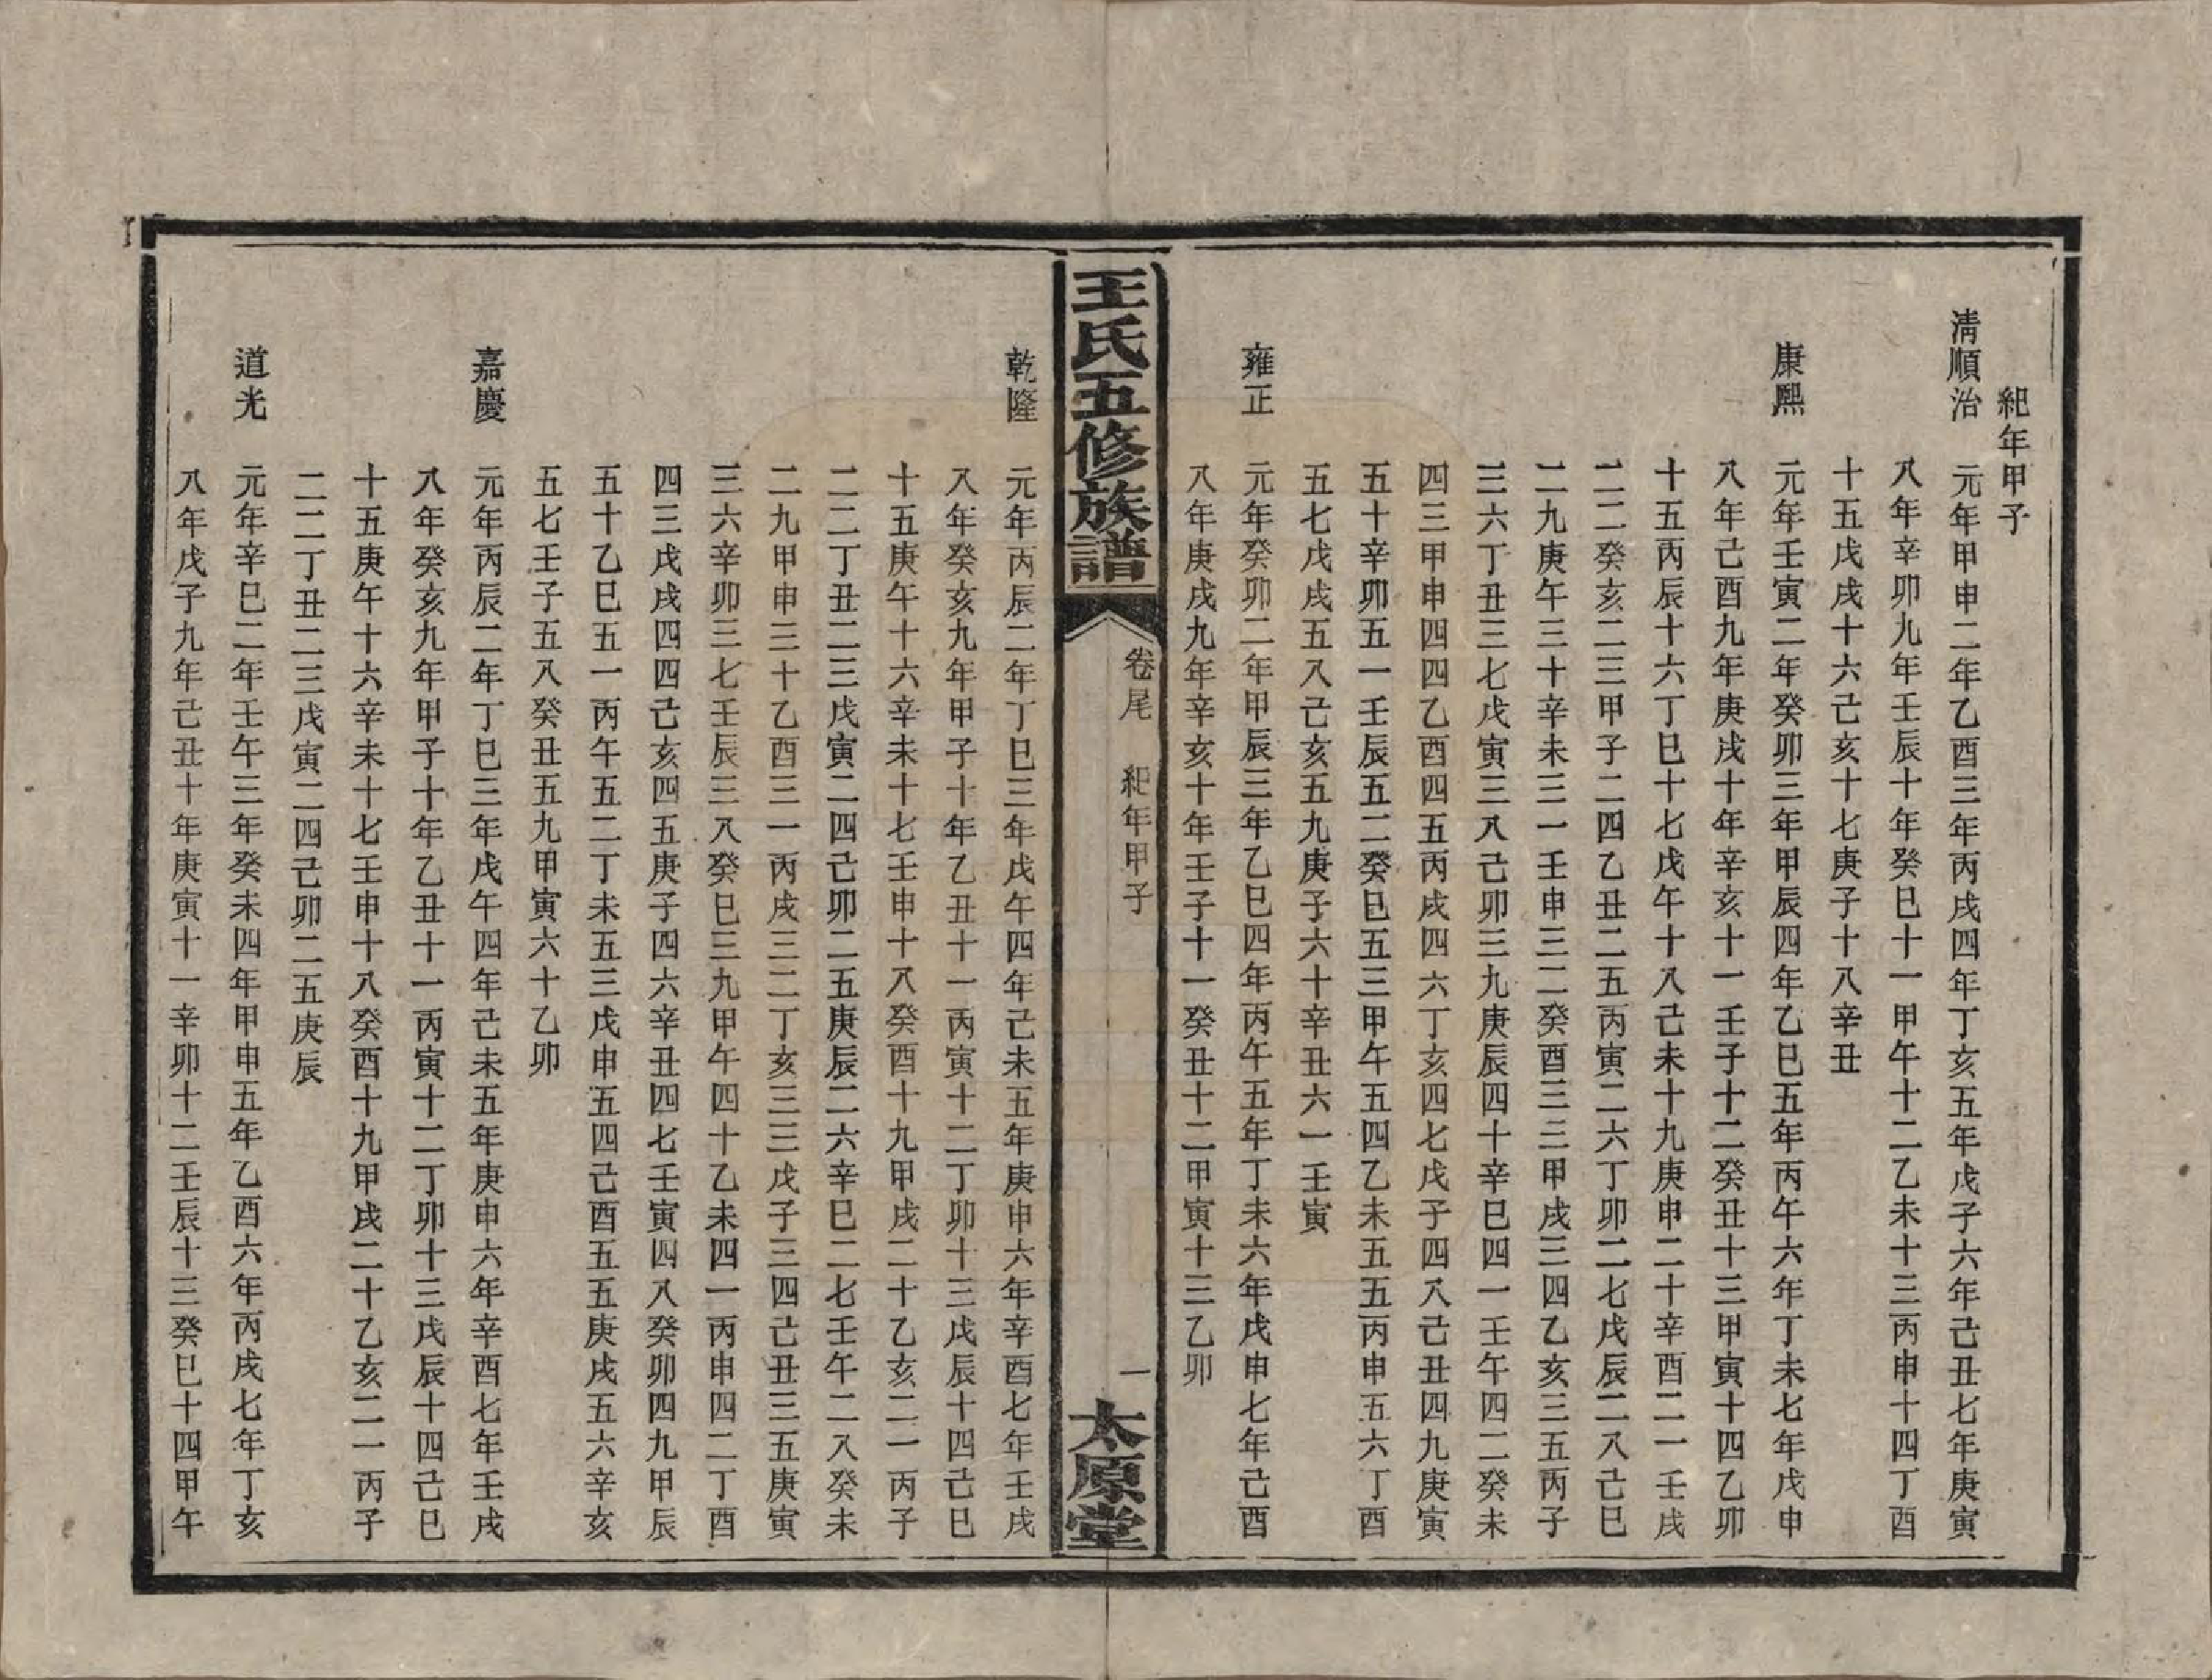 紀年甲子
清順治　元年甲申二年乙酉三年丙戌四年丁亥五年戊子六年己丑七年庚寅
八年辛卯九年壬辰十年癸巳十一甲午十二乙未十三丙申十四丁酉
十五戊戌十六己亥十七庚子十八辛丑
康熙　元年壬寅二年癸卯三年甲辰四年乙巳五年丙午六年丁未七年戊申
八年己酉九年庚戌十年辛亥十一壬子十二癸丑十三甲寅十四乙卯
十五丙辰十六丁巳十七戊午十八己未十九庚申二十辛酉二一壬戌
二二癸亥二三甲子二四乙丑二五丙寅二六丁卯二七戊辰二八己巳
二九庚午三十辛未三一壬申三二癸酉三三甲戌三四乙亥三五丙子
三六丁丑三七戊寅三八己卯三九庚辰四十辛巳四一壬午四二癸未
四三甲申四四乙酉四五丙戌四六丁亥四七戊子四八己丑四九庚寅
五十辛卯五一壬辰五二癸巳五三甲午五四乙未五五丙申五六丁酉
五七戊戌五八己亥五九庚子六十辛丑六一壬寅
雍正　元年癸卯二年甲辰三年乙巳四年丙午五年丁未六年戊申七年己酉
八年庚戌九年辛亥十年壬子十一癸丑十二甲寅十三乙卯
王氏五修族譜　卷尾　紀年甲子　一　太原堂
乾隆　元年丙辰二年丁巳三年戊午四年己未五年庚申六年辛酉七年壬戌
八年癸亥九年甲子十年乙丑十一丙寅十二丁卯十三戊辰十四己巳
十五庚午十六辛未十七壬申十八癸酉十九甲戌二十乙亥二一丙子
二二丁丑二三戊寅二四己卯二五庚辰二六辛巳二七壬午二八癸未
二九甲申三十乙酉三一丙戌三二丁亥三三戊子三四己丑三五庚寅
三六辛卯三七壬辰三八癸巳三九甲午四十乙未四一丙申四二丁酉
四三戊戌四四己亥四五庚子四六辛丑四七壬寅四八癸卯四九甲辰
五十乙巳五一丙午五二丁未五三戊申五四己酉五五庚戌五六辛亥
五七壬子五八癸丑五九甲寅六十乙卯
嘉慶　元年丙辰二年丁巳三年戊午四年己未五年庚申六年辛酉七年壬戌
八年癸亥九年甲子十年乙丑十一丙寅十二丁卯十三戊辰十四己巳
十五庚午十六辛未十七壬申十八癸酉十九甲戌二十乙亥二一丙子
二二丁丑二三戊寅二四己卯二五庚辰
道光　元年辛巳二年壬午三年癸未四年甲申五年乙酉六年丙戌七年丁亥
八年戊子九年己丑十年庚寅十一辛卯十二壬辰十三癸巳十四甲午